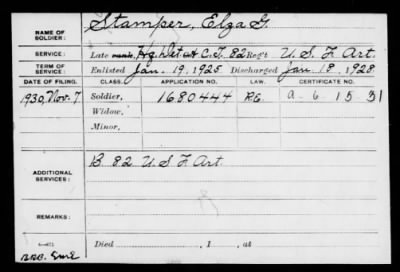 NAME OF SOLDIER: Stamper, Elza G.
SERVICE: Late rank, Hq. Det & C.T. 82 Reg't U.S.F. Art.
TERM OF SERVICE: Enlisted Jan. 19, 1925 Discharged Jan. 18, 1928
DATE OF FILING. CLASS. APPLICATION NO. LAW. CERTIFICATE NO.
1930, Nov. 7 Soldier, 1680444 a-6 15 31
Widow,
Minor,
ADDITIONAL SERVICES: B 82 U.S.F. Art.
REMARKS:
Died , 1 , at